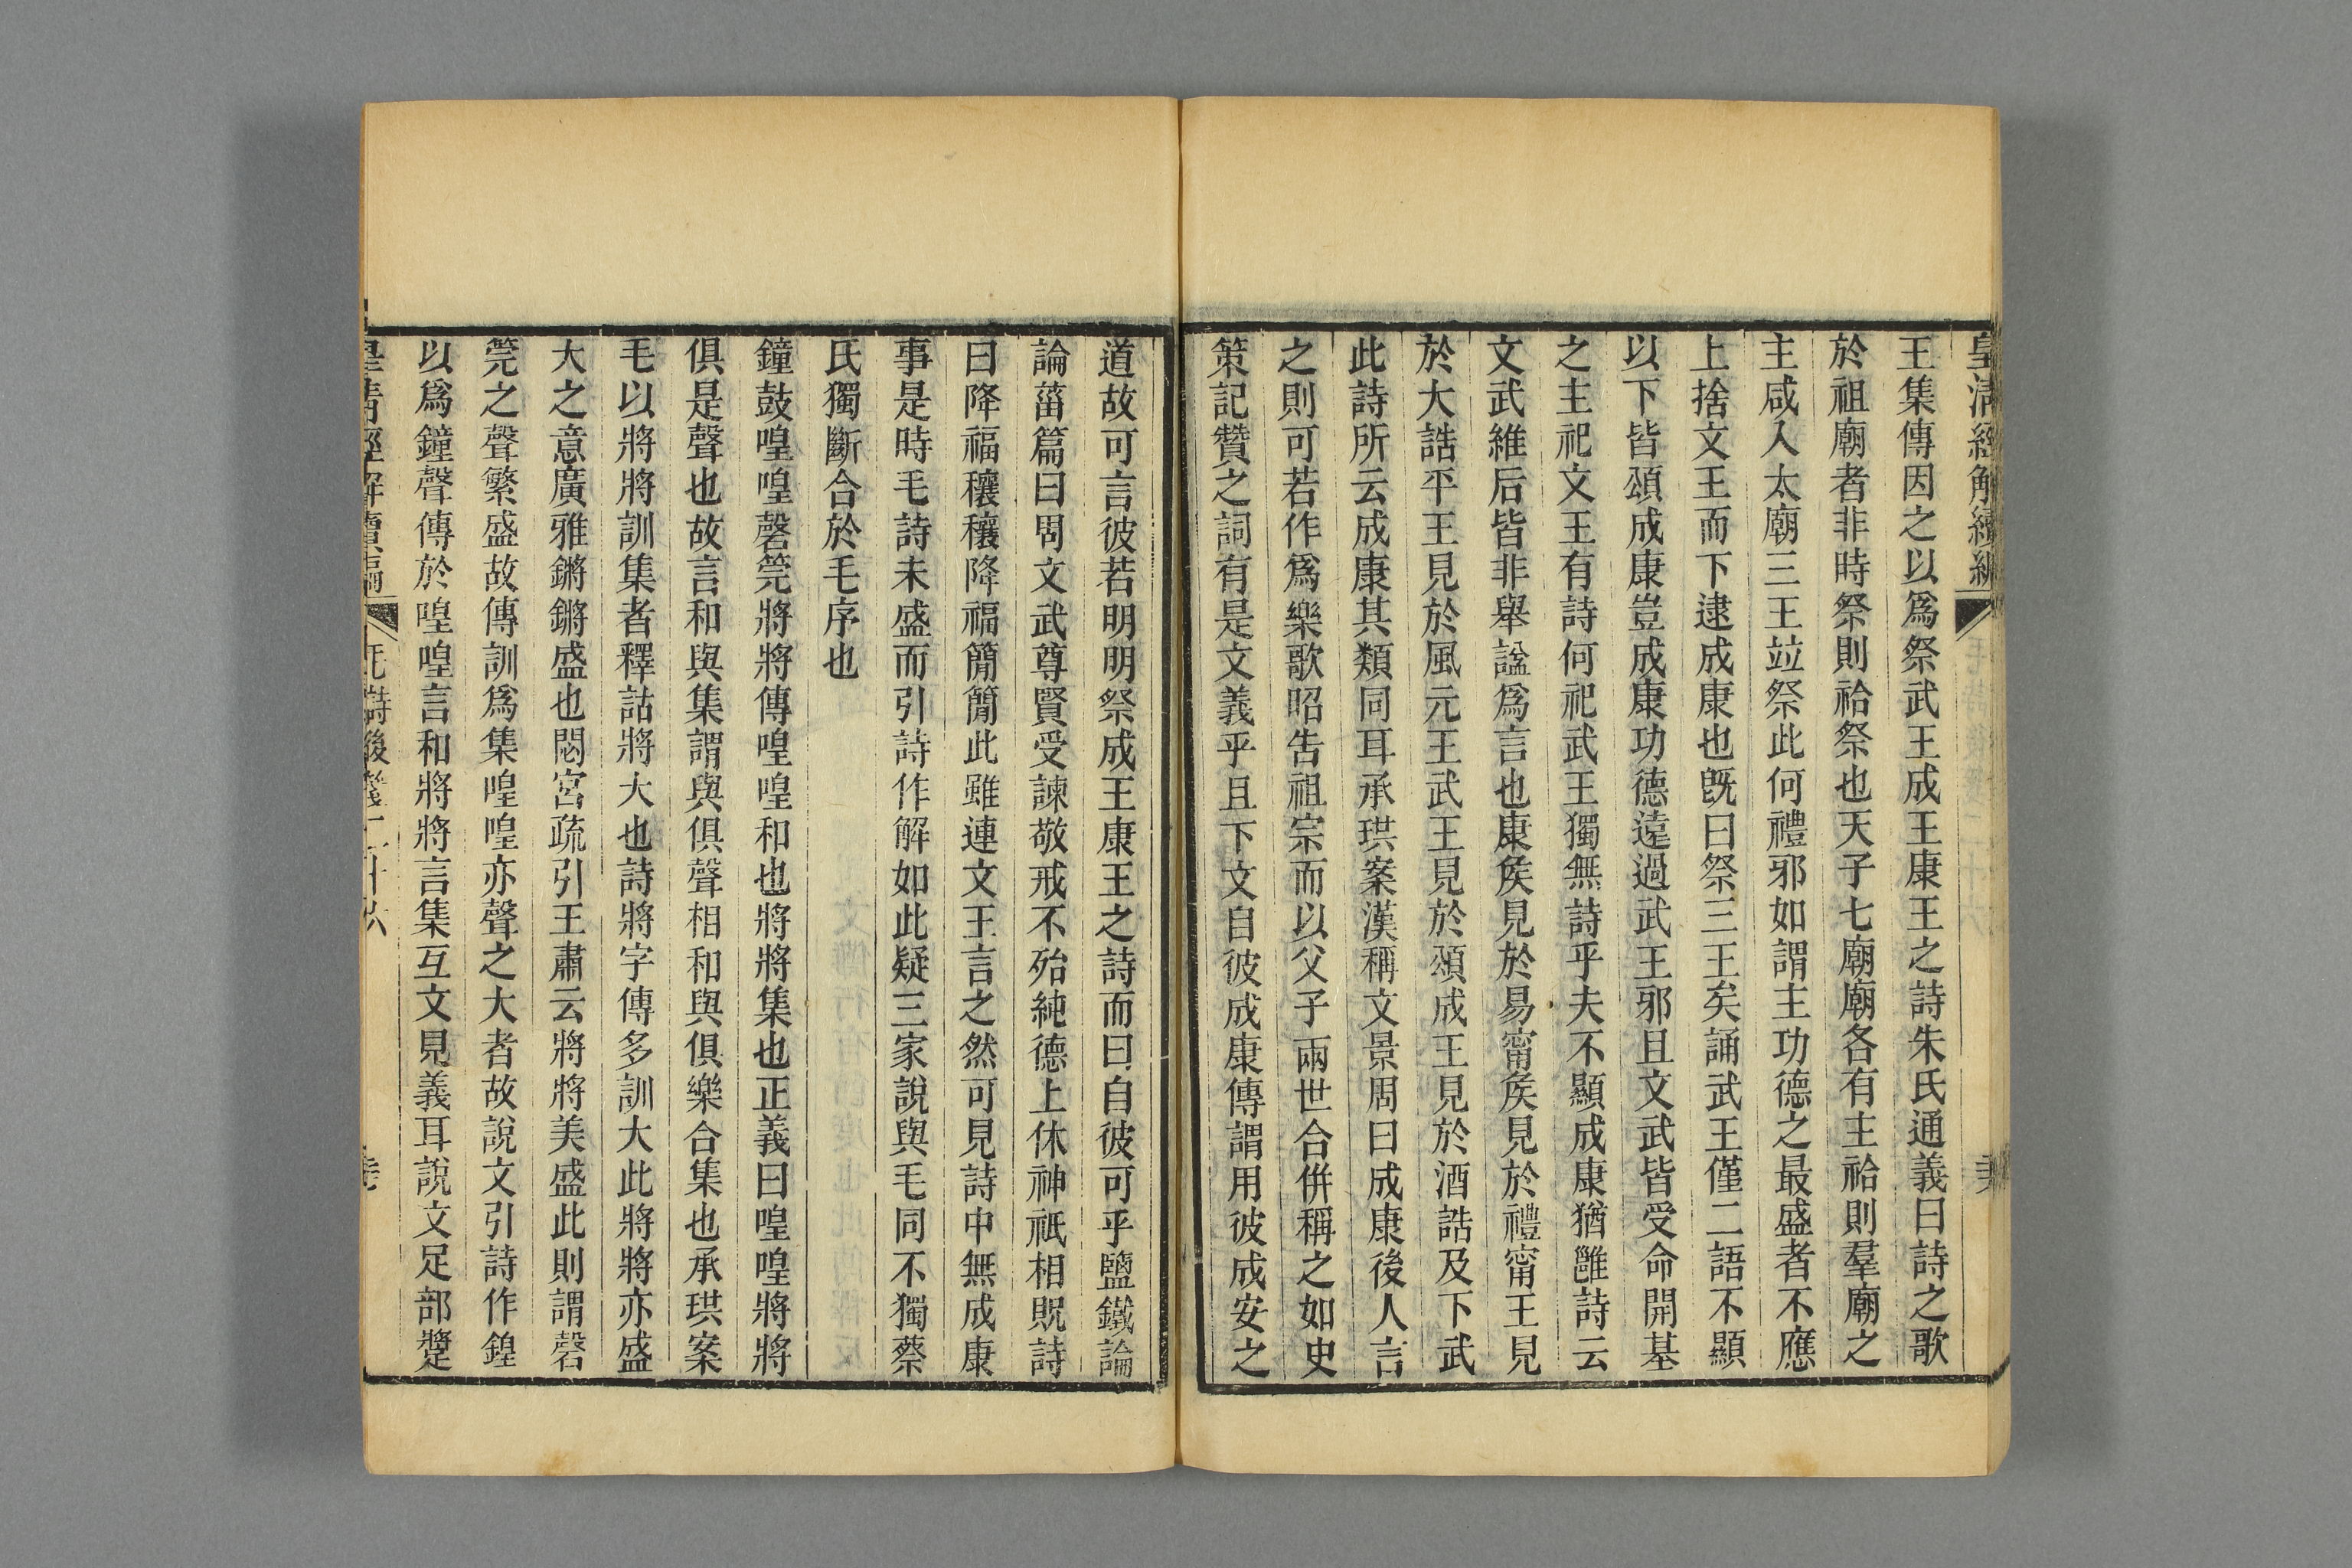 皇清經解續編
王集傳因之以爲祭武王成王康王之詩朱氏通義曰詩之歌
於祖廟者非時祭則祫祭也天子七廟廟各有主祫則羣廟之
主咸入太廟三王竝祭此何禮邪如謂主功德之最盛者不應
上捨文王而下逮成康也旣曰祭三王矣誦武王僅二語不顯
以下皆頌成康豈成康功德遠過武王邪且文武皆受命開基
之主祀文王有詩何祀武王獨無詩乎夫不顯成康猶雝詩云
文武維后皆非舉諡爲言也康矦見於易甯矦見於禮甯王見
於大誥平王見於風元王武王見於頌成王見於酒誥及下武
此詩所云成康其類同耳承珙案漢稱文景周曰成康後人言
之則可若作爲樂歌昭告祖宗而以父子兩世合倂稱之如史
策記贊之詞有是文義乎且下文自彼成康傳謂用彼成安之
道故可言彼若明明祭成王康王之詩而曰自彼可乎鹽鐵論
論菑篇曰周文武尊賢受諫敬戒不殆純德上休神祇相貺詩
曰降福穰穰降福簡簡此雖連文王言之然可見詩中無成康
事是時毛詩未盛而引詩作解如此疑三家說與毛同不獨蔡
氏獨斷合於毛序也
鐘鼓喤喤磬筦將將傳喤喤和也將將集也正義曰喤喤將將
俱是聲也故言和與集謂與俱聲相和與俱樂合集也承珙案
毛以將將訓集者釋詁將大也詩將字傳多訓大此將將亦盛
大之意廣雅鏘鏘盛也閟宮疏引王肅云將將美盛此則謂磬
筦之聲繁盛故傳訓爲集喤喤亦聲之大者故說文引詩作鍠
以爲鐘聲傳於喤喤言和將將言集互文見義耳說文足部蹩
皇清經解續編 毛詩後箋二十六